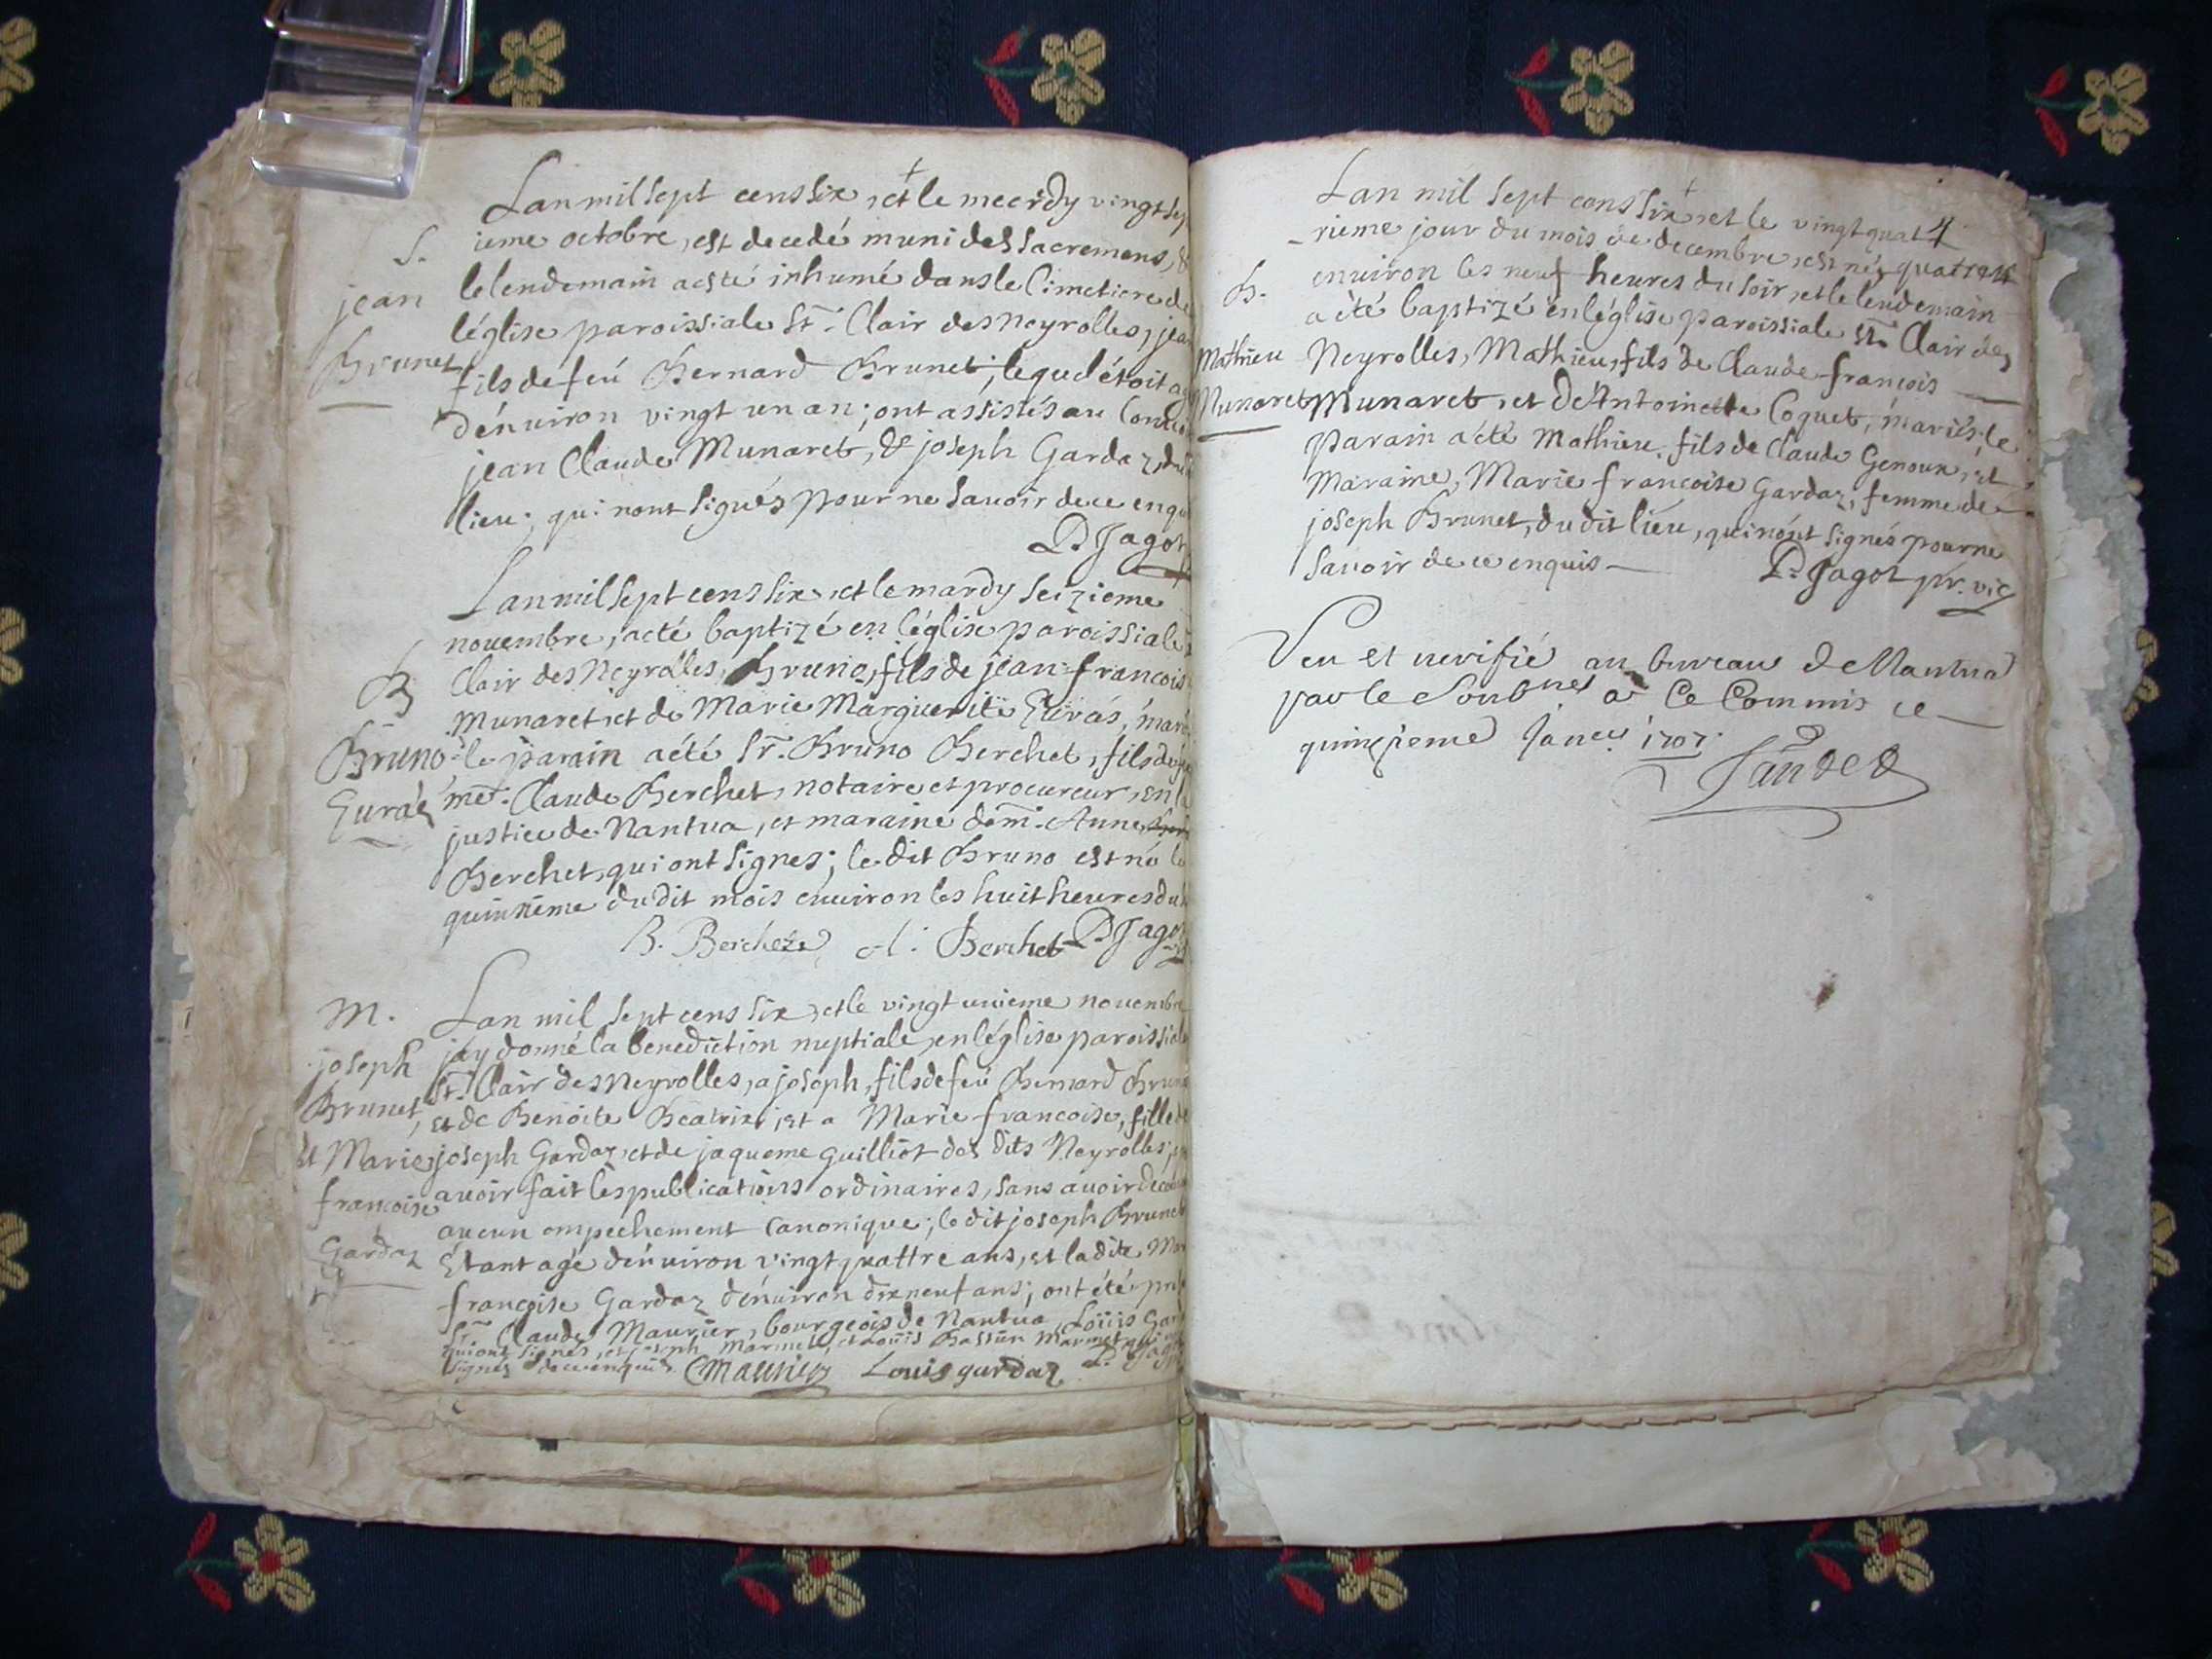 Lan mil sept cens six, et le mecrdy vingt sep
ieme octobre, est decedé muni des sacremens, &
S.
le lendemain a esté inhumé dans le Cimetiere de
jean
léglise paroissiale St. Clair des Neyrolles, jean
Brunet
fils de feü Bernard Brunet; lequel étoit agé
dénuiron vingt un an; ont assistés au
jean Claude Munaret, & joseph Gardaz, du
lieu; qui nont signés pour ne sauoir de ce enquis
D. Jagot
Lan mil sept cens six, et le mardy seizieme
nouembre, a eté baptizé en léglise paroissiale
B
Clair des Neyrolles, Bruno, fils de jean françois
Munaret, et de Marie Margueritte Euraś, mariés
Bruno
le parain a été Sr. Bruno Berchet, fils de feü
Euraś
me. Claude Berchet, notaire et procureur, en la
justice de Nantua, et maraine dem. Anne
Berchet, qui ont signes; le dit Bruno est né le
quinzieme du dit mois enuiron les huit heures du
B. Berchet A. Berchet D. Jagot
M.
Lan mil sept cens six, et le vingt unieme nouembre
joseph
jay donné la benediction nuptiale, en léglise paroissiale
Brunet,
St. Clair des Neyrolles, a joseph, fils de feü Bernard Brunet
et de Benoite Béatrix; et a Marie françoise, fille de
et Marie
joseph Gardaz, et de jaqueme guilliot des dits Neyrolles;
françoise
auoir fait les publications ordinaires, sans auoir
aucun empechement Canonique; le dit joseph Brunet
Gardaz
étant agé dénuiron vingt quattre ans, et la dite Marie
françoise Gardaz dénuiron dixneuf ans; ont été
Sr. Claude Maurier, bourgeois de Nantua, Loüis Gardaz
qui ont signés, et joseph Marmet, et Loüis Bastien Marmet qui
signés de ce enquis. CMaurier Louis gardaz D. Jagot
Lan mil sept cens six, et le vingt quat 4
rieme jour du mois de decembre, est né
B.
enuiron les neuf heures du soir, et le lendemain
a été baptizé en léglise paroissiale St. Clair des
Mathieu
Neyrolles, Mathieu, fils de Claude françois
Munaret
Munaret, et d'Antoinette Coquet, mariés; le
parain a été Mathieu, fils de Claude Genoux, et
maraine, Marie françoise Gardaz, femme de
joseph Brunet, du dit liéu, qui nont signés pour ne
sauoir de ce enquis
D. Jagot pr. vic
Veu et verifié au bureau de Nantua
par le Soubne a Ce Commis ce
quinzieme Janer 1707.